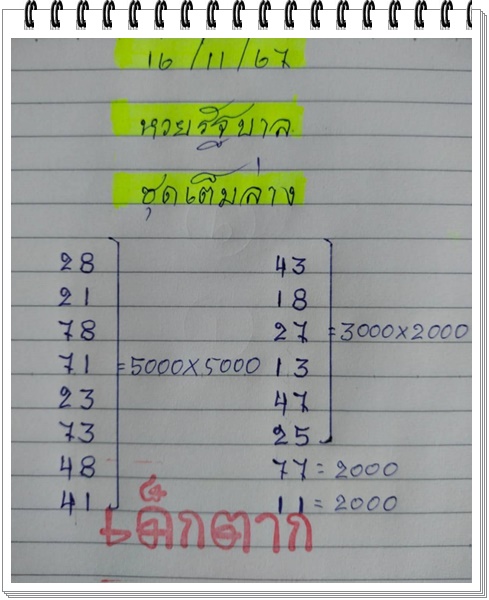 16/11/67
หวยรัฐบาล
ชุดเต็มล่าง
28
21
78
71 = 5000x5000
23
73
48
41
43
18
27 = 3000x2000
13
47
25
77 = 2000
11 = 2000